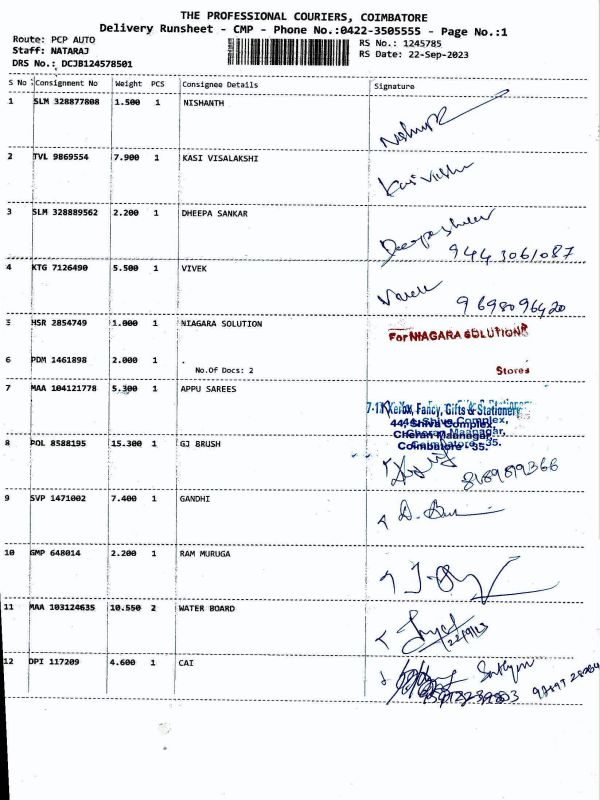 THE PROFESSIONAL COURIERS, COIMBATORE
Delivery Runsheet - CMP - Phone No.:0422-3505555 - Page No.:1
Route: PCP AUTO
RS No.: 1245785
Staff: NATARAJ
RS Date: 22-Sep-2023
DRS No.: DCJB124578501
S No Consignment No Weight PCS Consignee Details Signature
1 SLM 328877808 1.500 1 NISHANTH
2 TVL 9869554 7.900 1 KASI VISALAKSHI
3 SLM 328889562 2.200 1 DHEEPA SANKAR
9443061087
4 KTG 7126490 5.500 1 VIVEK
9698096420
5 HSR 2854749 1.000 1 NIAGARA SOLUTION
For NIAGARA SOLUTION
6 PDM 1461898 2.000 1 .
No.Of Docs: 2
Stores
7 MAA 104121778 5.300 1 APPU SAREES
Xerox, Fancy, Gifts & Stationery
44, Shiva Complex,
Cheran Maanagar,
Coimbatore - 35.
8 POL 8588195 15.300 1 GJ BRUSH
8489899366
9 SVP 1471002 7.400 1 GANDHI
10 GMP 648014 2.200 1 RAM MURUGA
11 MAA 103124635 10.550 2 WATER BOARD
22/9/23
12 DPI 117209 4.600 1 CAI